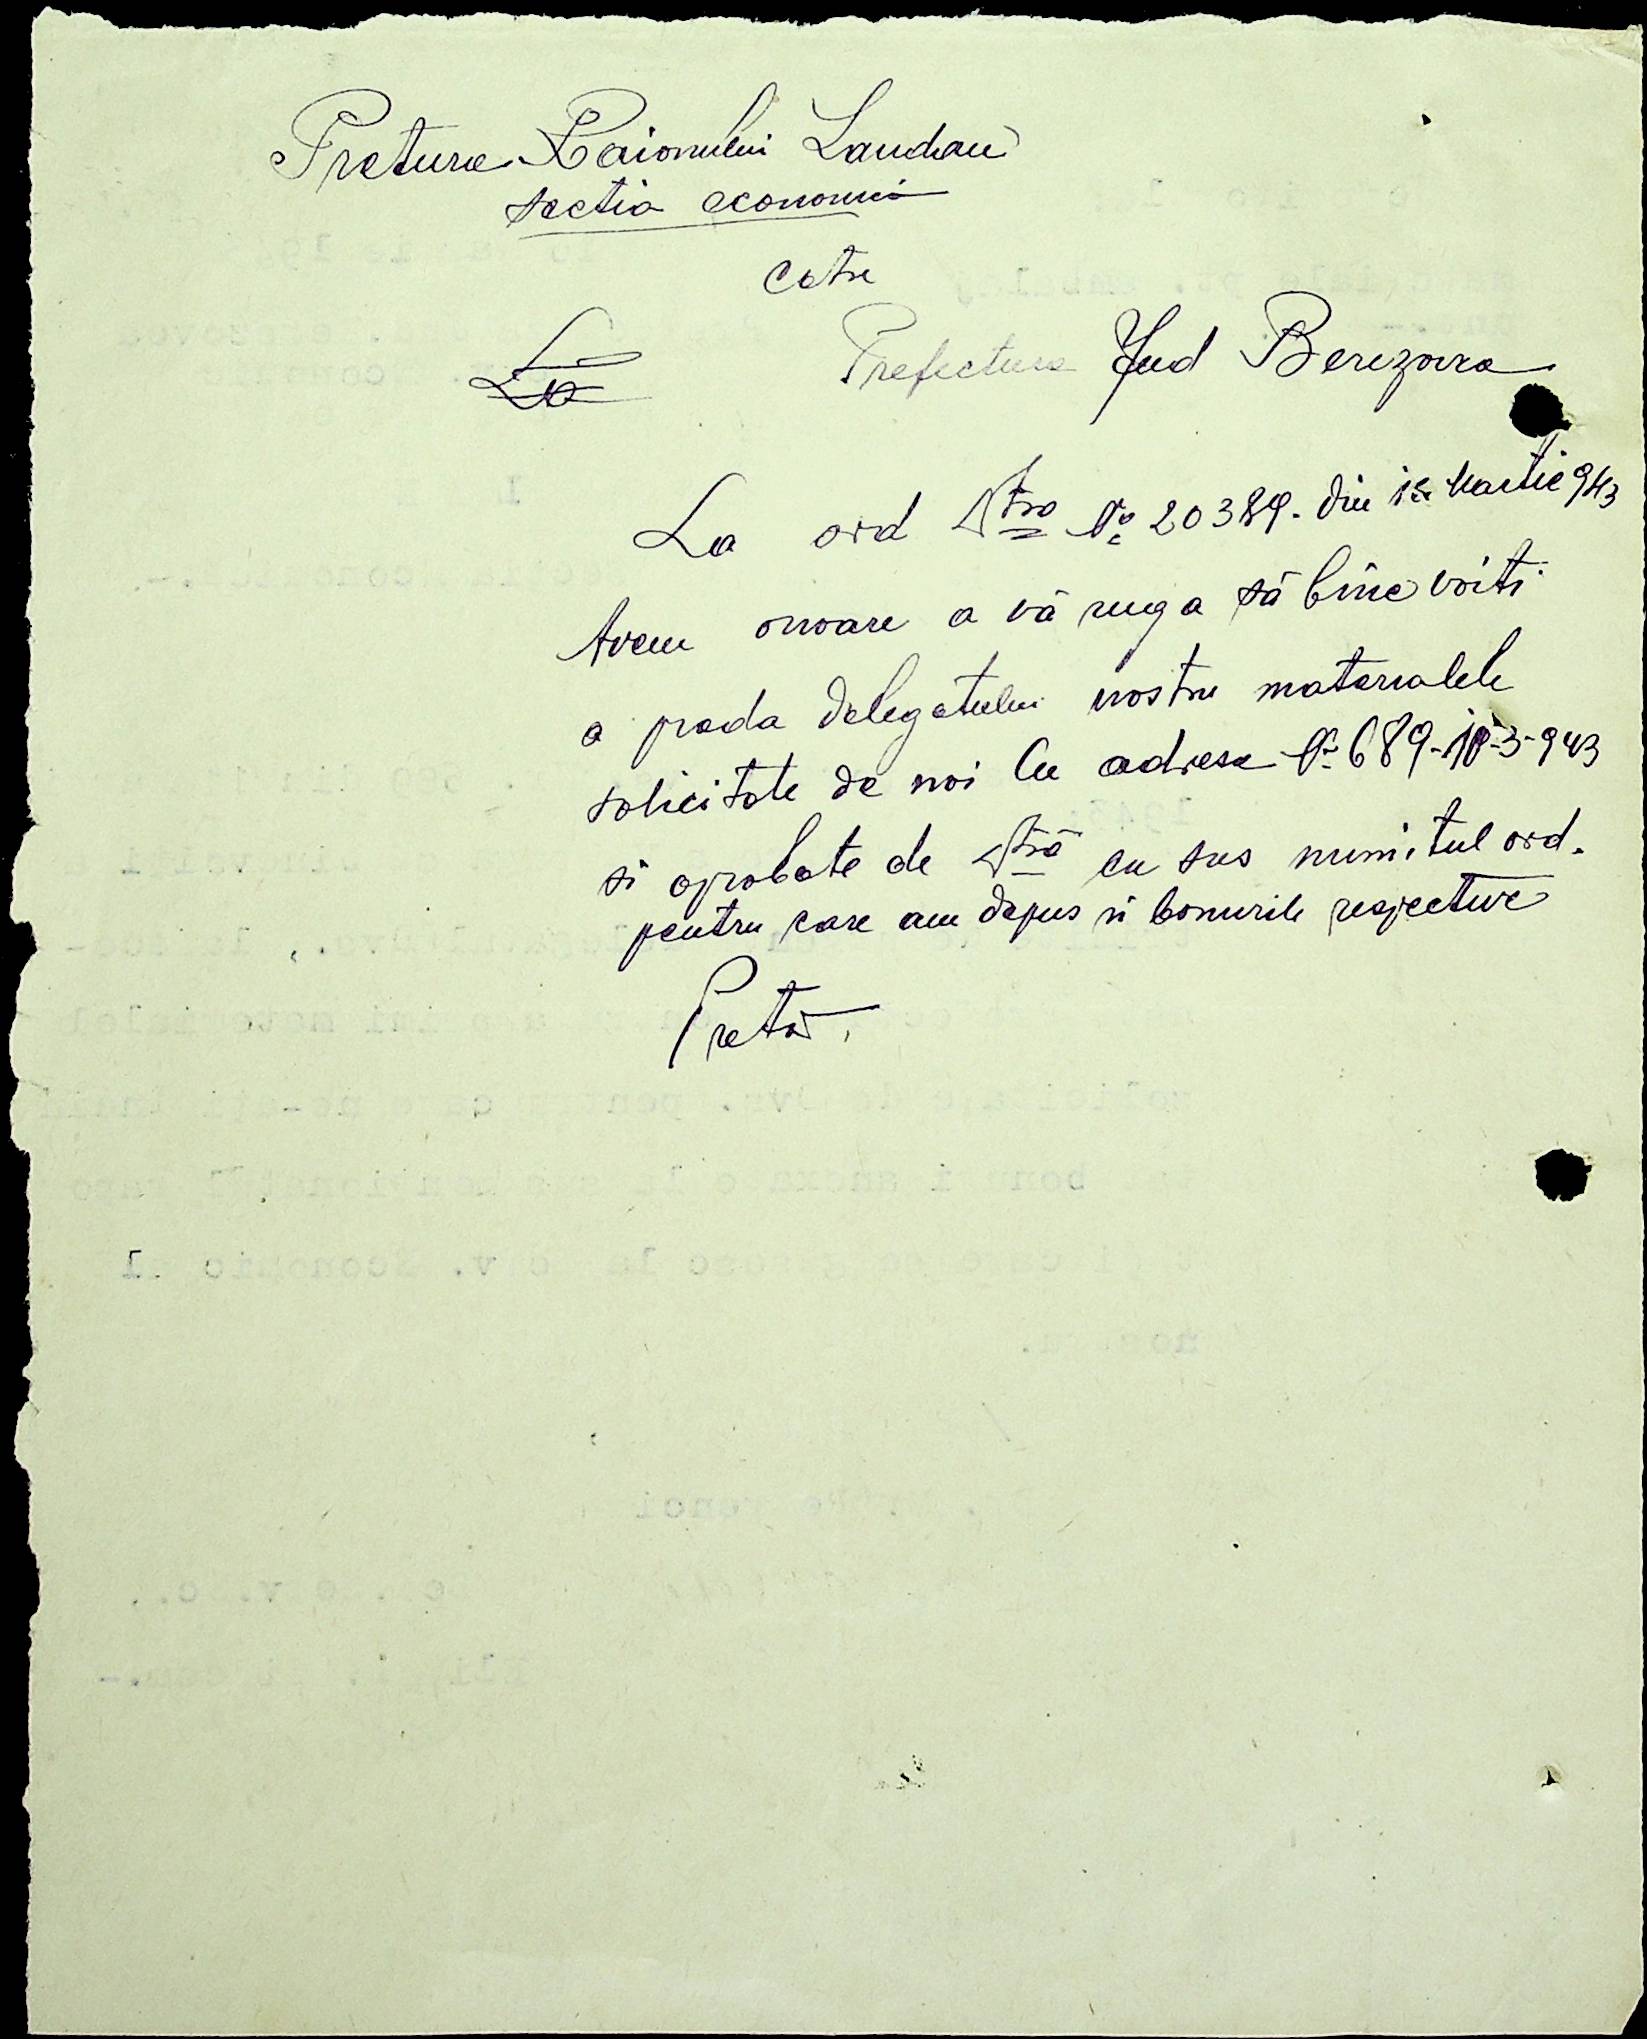 Pretura Raionului Landau
sectia economică
catre
Prefectura Jud Berezovca
La ord Dtra No 20389. din Martie 943
Avem onoare a vă ruga să bine voiti
a preda delegatului nostru materialele
solicitate de noi Cu adresa No 689-18-3-943
si aprobate de Dtră cu sus numitul ord.
pentru care am depus si bonurile respective
Pretor,